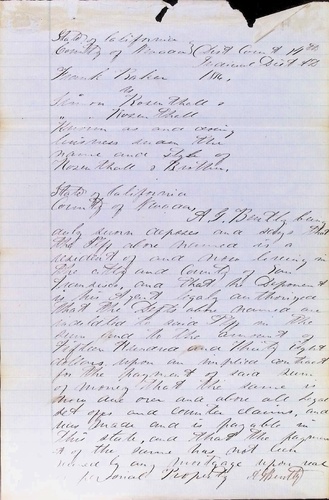 State of California
County of Nevada } Dist Court 14th
Judicial Dist
Frank Baker Plff.
vs
Simon Rosenthall &
" Rosenthall
Known as and doing
business under the
name and style of
Rosenthall & Brother,
State of California
County of Nevada,
A. J. Bently being
duly sworn deposes and says that
the Plff above named is a
resident of and now living in
the City and County of San
Francisco, and that the Deponent
is his Agent legaly authorized
that the Defts above named are
indebted to said Plff in the
sum and to the amount of
Fifteen Hundred and Thirty Eight
dollars upon an implied contract
for the payment of said sum
of money that the same is
now due over and above all legal
set offs and counter claims, and
was made and is payable in
this state, and that the payment
of the same has not been
secured by any mortgage upon real
or personal Property A J Bently